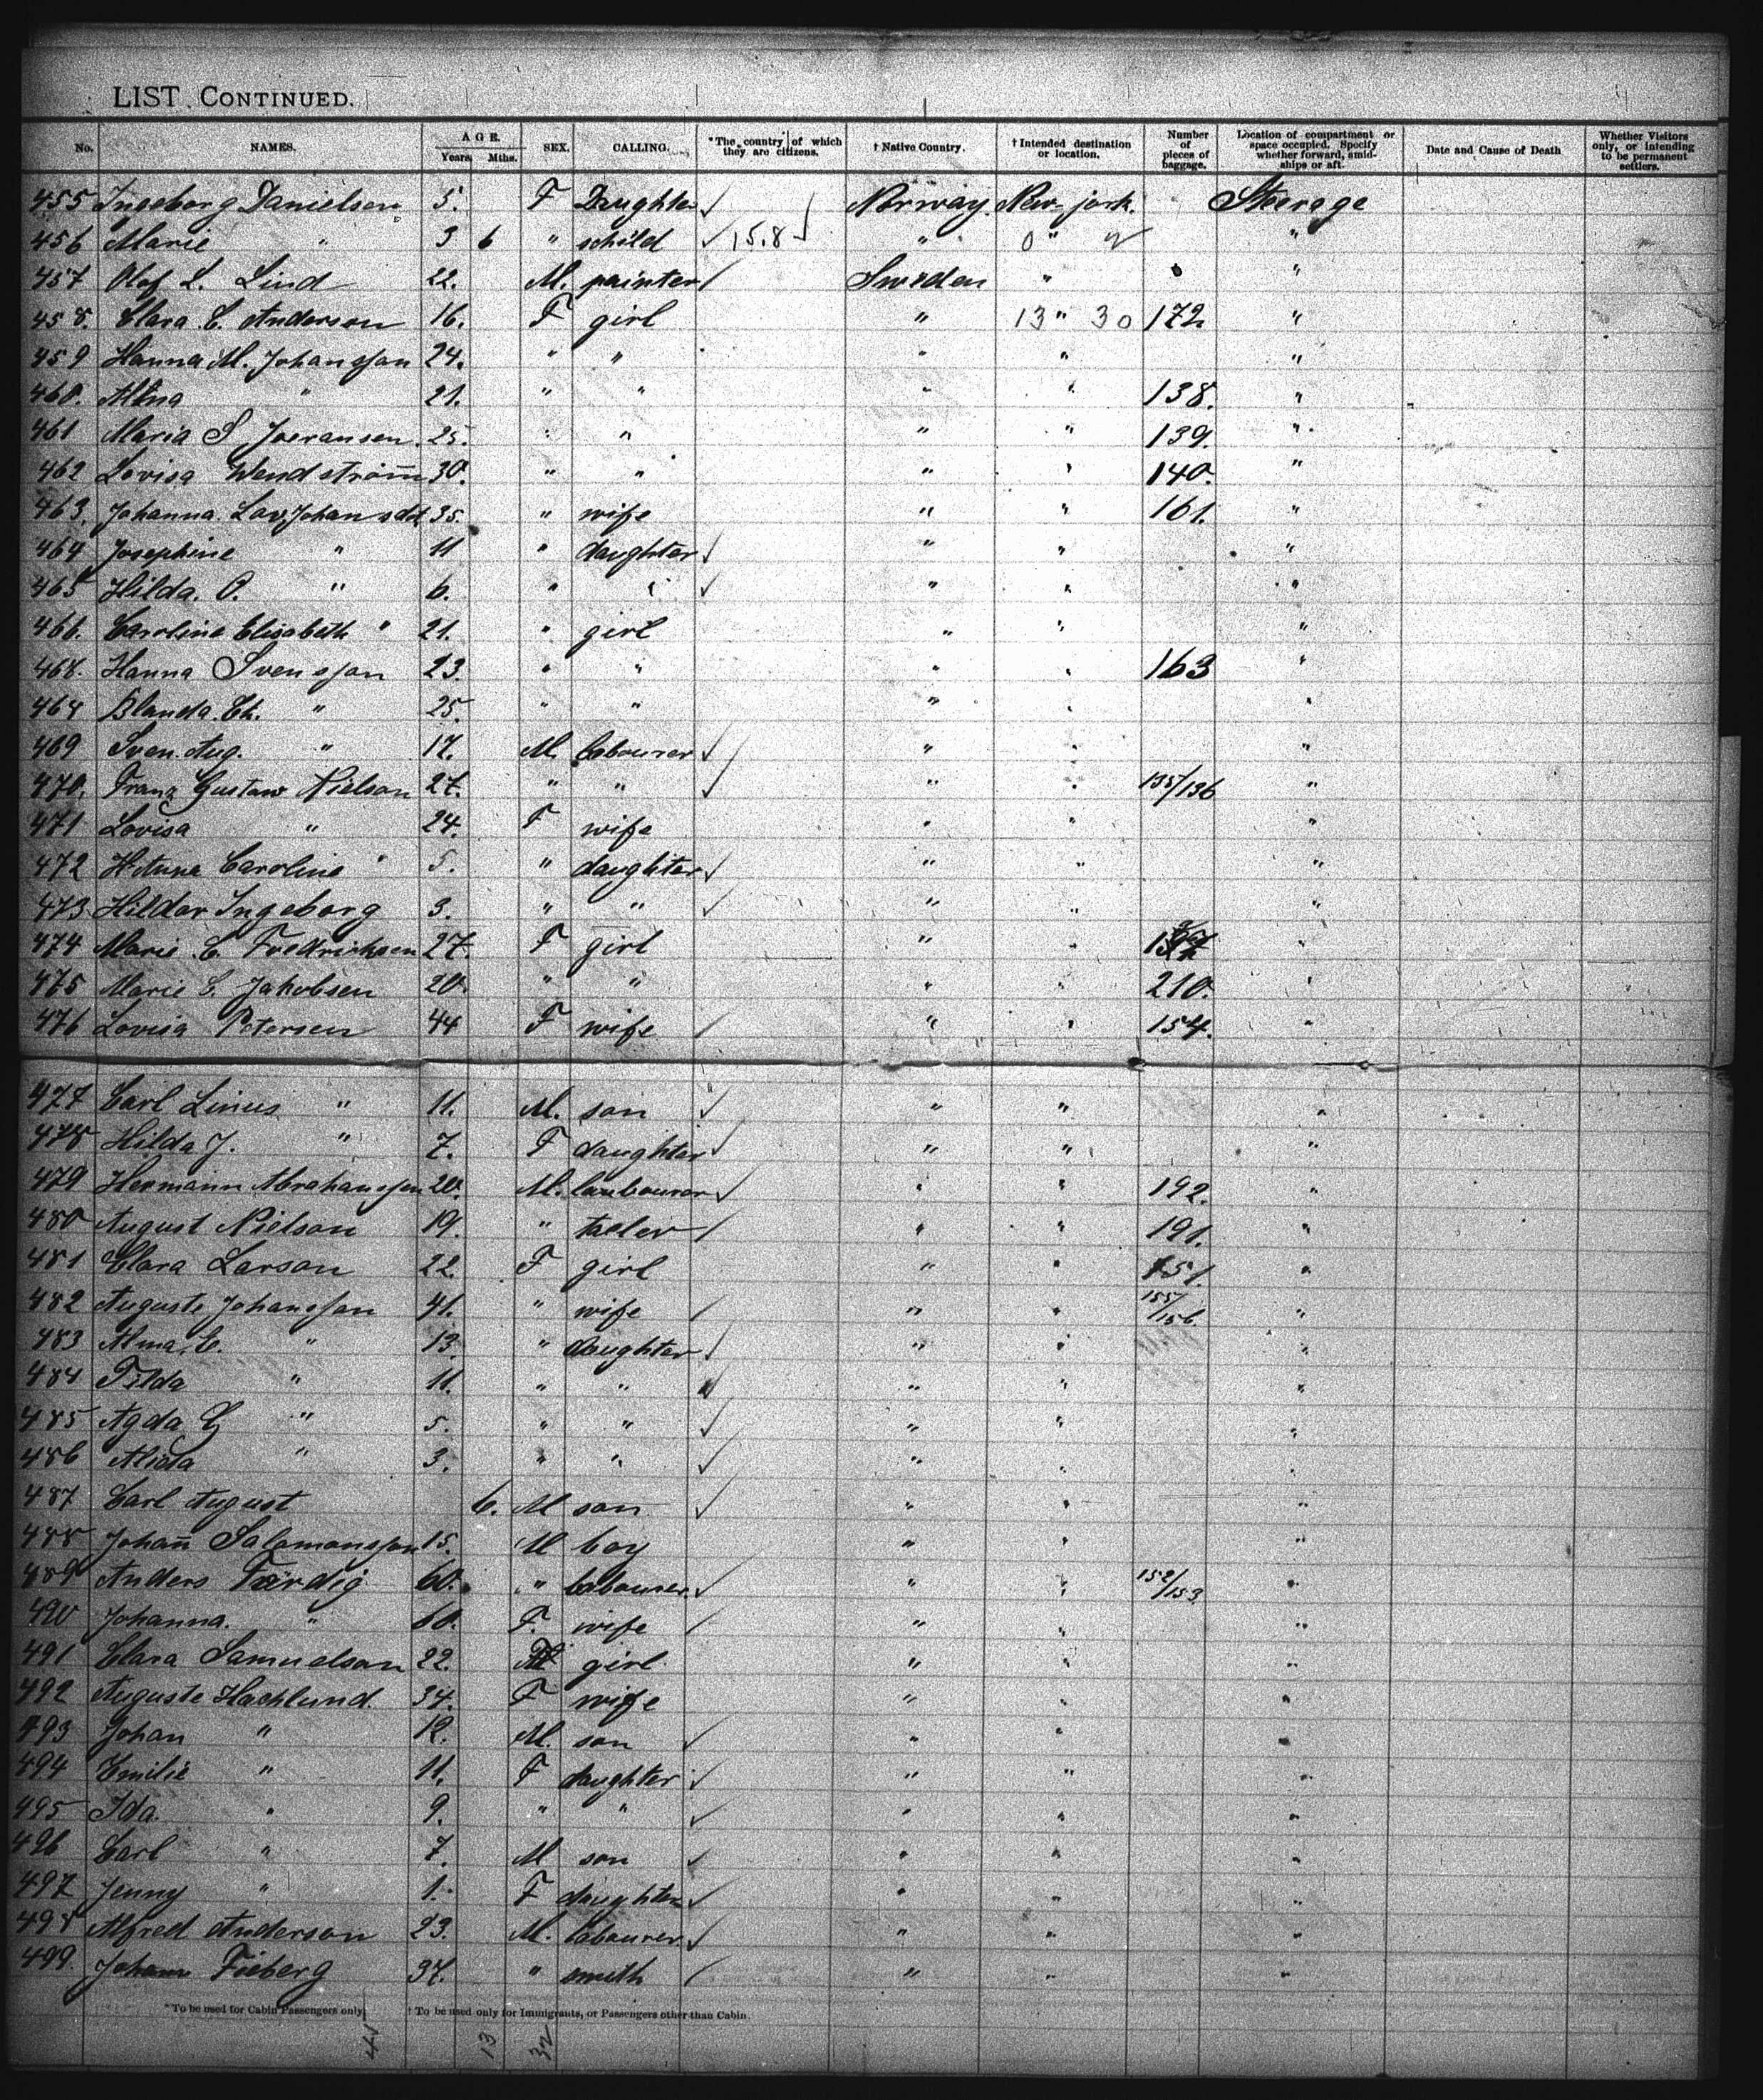 LIST CONTINUED.
No. NAMES. AGE. Years. Mths. SEX. CALLING. *The country of which they are citizens. † Native Country. † Intended destination or location. Number of pieces of baggage. Location of compartment or space occupied. Specify whether forward, amidships or aft. Date and Cause of Death Whether Visitors only, or intending to be permanent settlers.
455 Ingeborg Danielsen 5. F Daughter Norway. New york. Steerage
456 Marie " 3 6 " schild 15.8 " 0 " "
457 Olof L. Lind 22. M. painter Sweden " "
458. Clara C. Anderson 16. F girl " 13 " 30 172 "
459 Hanna M. Johansson 24. " " " " "
460. Alma " 21. " " " " 138. "
461 Maria S Joeransen. 25. " " " " 139. "
462 Lovisa Wendström 30. " " " " 140. "
463. Johanna. Lov. Johansdot 35. " wife " " 161. "
464 Josephine " 11 " daughter " " "
465 Hilda. O. " 6. " " " " "
461. Carolina Elisabeth " 21. " girl " " "
468. Hanna Svensson 23. " " " " 163 "
464 Blanda. Ch. " 25. " " " " "
469 Sven. Aug. " 17. M. labourer " " "
470. Franz Gustaw Nielson 27. " " " " 135/136 "
471 Lovisa " 24. F wife " " "
472 Caroline " 5. " daughter " " "
473. Hilder Ingeborg 3. " " " " "
474 Marie C. Fredricksen 27. F girl " " "
475 Marie S. Jakobsen 20. " " " " 210. "
476 Lovisa Petersen 44 F wife " " 154. "
477 Carl Linus " 11. M. son " " "
478 Hilda J. " 7. F daughter " " "
479 Hermann Abrahamsson 20. M. laubourer " " 192. "
480 August Nielson 19. " tailer " " 191. "
481 Clara Larson 22. F girl " " 151. "
482 Auguste Johansson 41. " wife " " 155/156. "
483 Alma. E. " 13. " daughter " " "
484 Tilda " 11. " " " " "
485 Agda " 5. " " " " "
486 Alida " 3. " " " " "
487 Carl August 6. M son " " "
488 Johan̄ Salomonsson 15. M boy " " "
489 Anders Färdig 60. " labourer. " " 152/153. "
490 Johanna. " 60. F. wife " " "
491 Clara Samuelson 22. F girl " " "
492 Auguste Hachlund. 34. F wife " " "
493 Johan " 12. M. son " " "
494 Emilie " 11. F daughter " " "
495 Ida. " 9. " " " " "
496 Carl " 7. M son " " "
497 Jenny " 1. F daughter " " "
498 Alfred Anderson 23. M. labourer. " " "
499. Johann Fieberg 37. " smith " " "
*To be used for Cabin Passengers only. † To be used only for Immigrants, or Passengers other than Cabin.
13 32